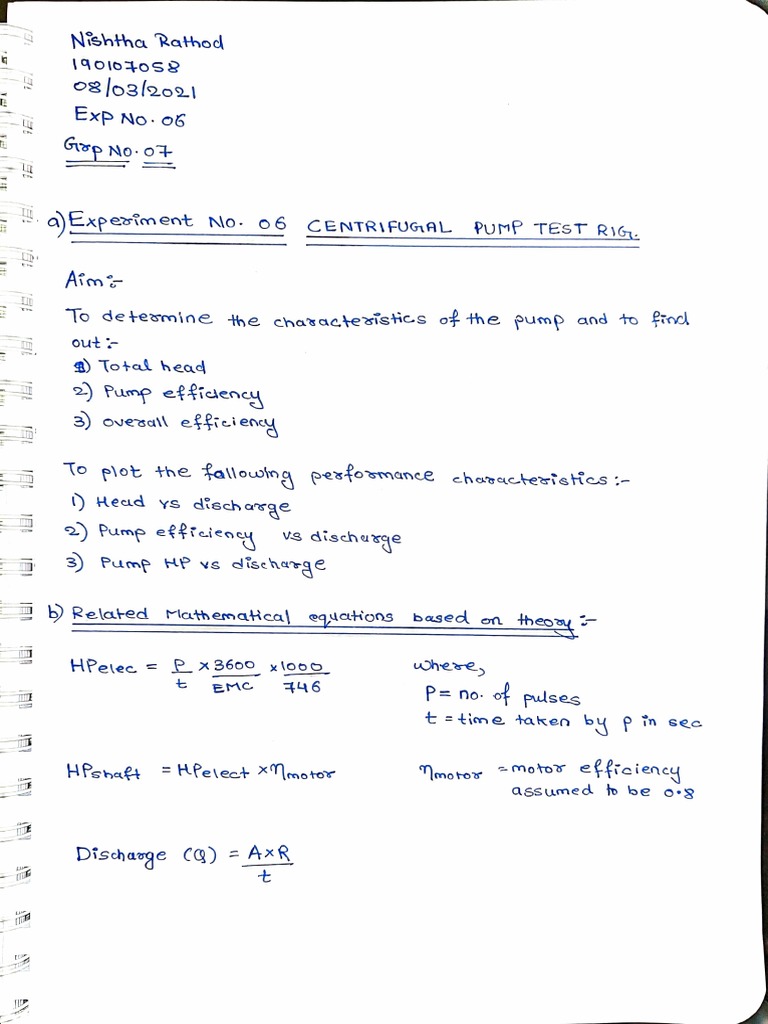 Nishtha Rathod
190107058
08/03/2021
Exp No. 06
Grp No. 07
a) Experiment No. 06 CENTRIFUGAL PUMP TEST RIG.
Aim:-
To determine the characteristics of the pump and to find
out:-
1) Total head
2) Pump efficiency
3) overall efficiency
To plot the following performance characteristics:-
1) Head vs discharge
2) Pump efficiency vs discharge
3) Pump HP vs discharge
b) Related Mathematical equations based on theory:-
HPelec = P/t × 3600/EMC × 1000/746 where,
P = no. of pulses
t = time taken by p in sec
HPshaft = HPelect × ηmotor ηmotor = motor efficiency
assumed to be 0.8
Discharge (Q) = A×R/t